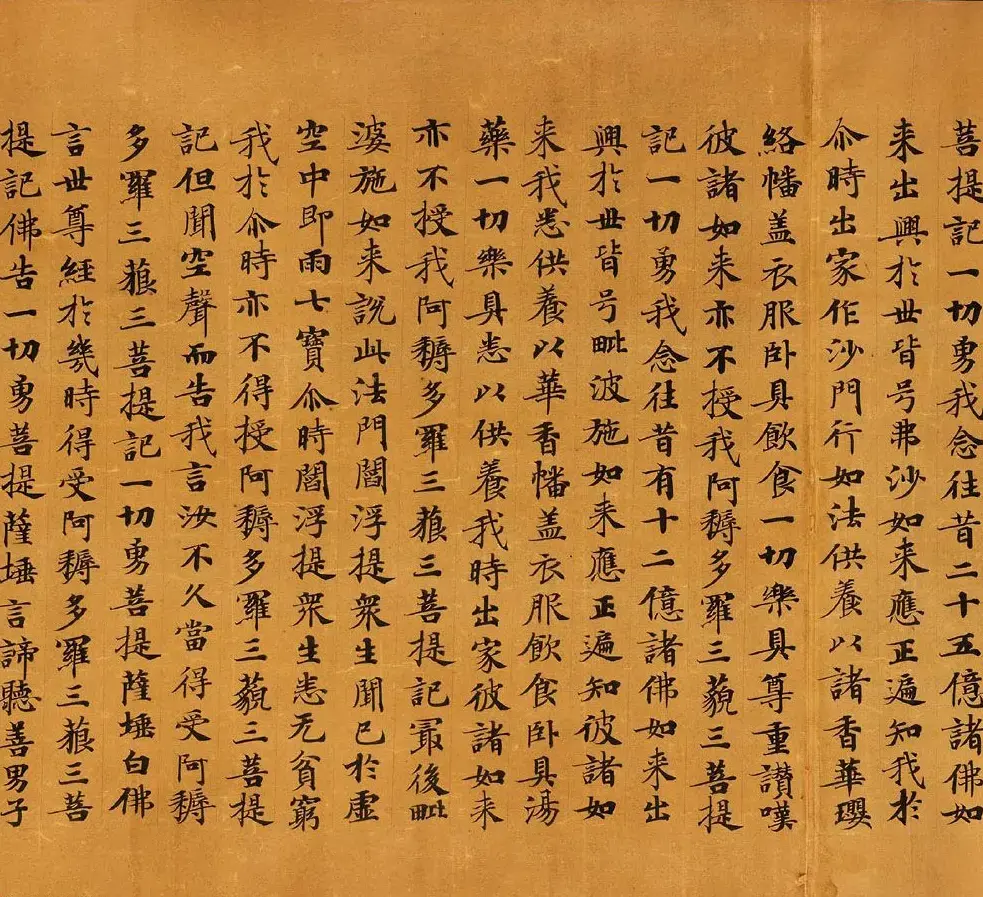 菩提記一切勇我念往昔二十五億諸佛如
来出興於世皆号弗沙如来應正遍知我於
尒時出家作沙門行如法供養以諸香華瓔
絡幡盖衣服卧具飲食一切樂具尊重讃嘆
彼諸如来亦不授我阿耨多羅三藐三菩提
記一切勇我念往昔有十二億諸佛如来出
興於世皆号毗波施如来應正遍知彼諸如
来我悉供養以華香幡盖衣服飲食卧具湯
藥一切樂具悉以供養我時出家彼諸如来
亦不授我阿耨多羅三藐三菩提記冣後毗
婆施如来説此法門閻浮提衆生聞已於虚
空中即雨七寶尒時閻浮提衆生悉无貧窮
我於尒時亦不得授阿耨多羅三藐三菩提
記但聞空聲而告我言汝不久當得受阿耨
多羅三藐三菩提記一切勇菩提薩埵白佛
言世尊經於幾時得受阿耨多羅三藐三菩
提記佛告一切勇菩提薩埵言諦聽善男子